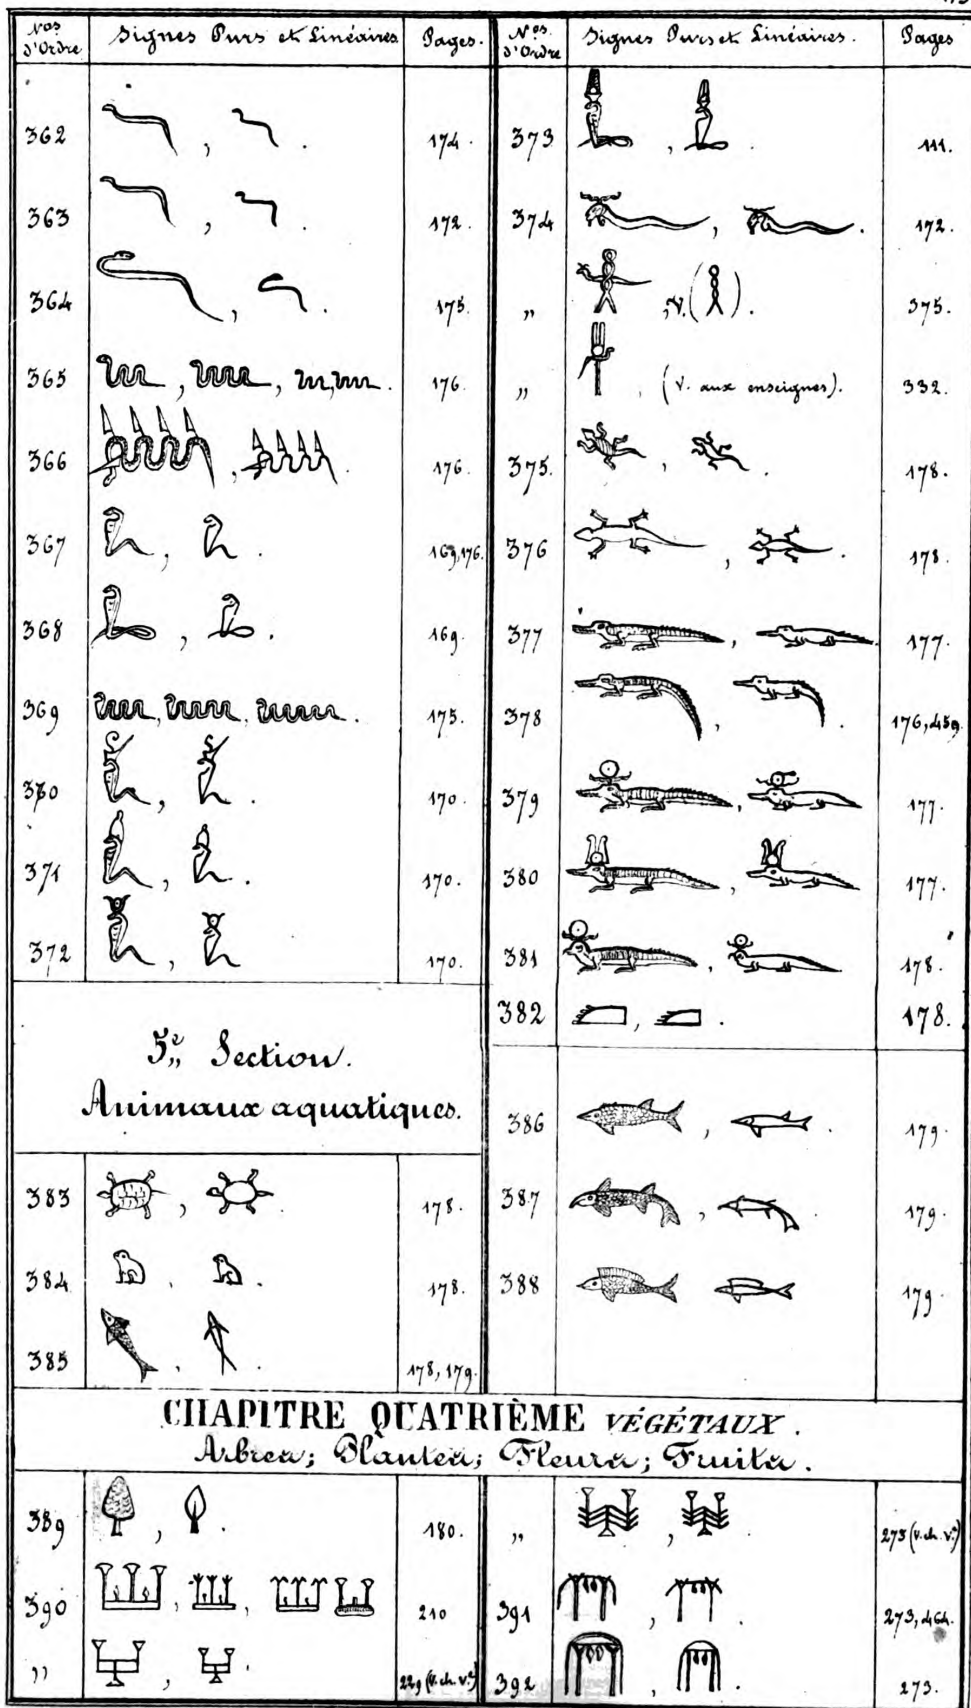 Nos d'Ordre Signes Purs et Linéaires Pages.
362 , . 174.
363 , . 172.
364 , . 175.
365 , , , . 176.
366 , . 176.
367 , . 169,176.
368 , . 169.
369 , , . 175.
370 , . 170.
371 , . 170.
372 , . 170.
5e Section.
Animaux aquatiques.
383 , . 178.
384 , . 178.
385 , . 178, 179.
Nos d'Ordre Signes Purs et Linéaires. Pages
373 , . 111.
374 , . 172.
" , V. ( ). 375.
" , (V. aux enseignes). 332.
375. , . 178.
376 , . 178.
377 , . 177.
378 , . 176, 459.
379 , . 177.
380 , . 177.
381 , . 178.
382 , . 178.
386 , . 179.
387 , . 179.
388 , . 179.
CHAPITRE QUATRIÈME VÉGÉTAUX.
Arbres; Plantes; Fleurs; Fruits.
389 , . 180.
390 , , 210
" , . 229 (V. ch. Ve)
" , . 273 (V. ch. Ve)
391 , . 273, 464.
392 , . 273.